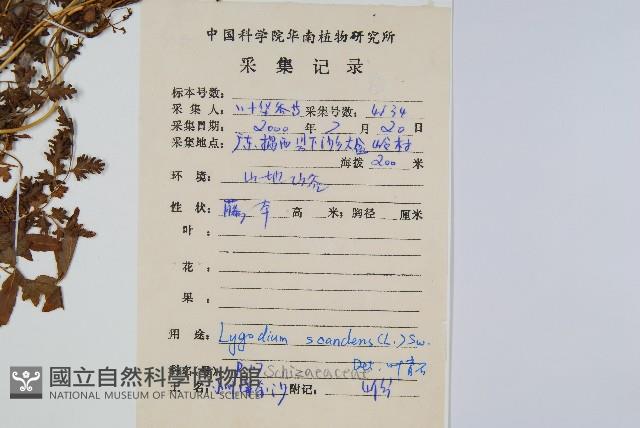 中国科学院华南植物研究所
采集记录
标本号数:
采集人: 叶华谷 采集号数: 4134
采集日期: 2000 年 2 月 20 日
采集地点: 广东.揭西
海拨 200 米
环境: 山地
性状: 藤, 草 高 米; 胸径 厘米
叶:
花
果:
用途: Lygodium scandens (L.) Sw.
Schizaeaceae Det.
附记:
國立自然科學博物館
NATIONAL MUSEUM OF NATURAL SCIENCE